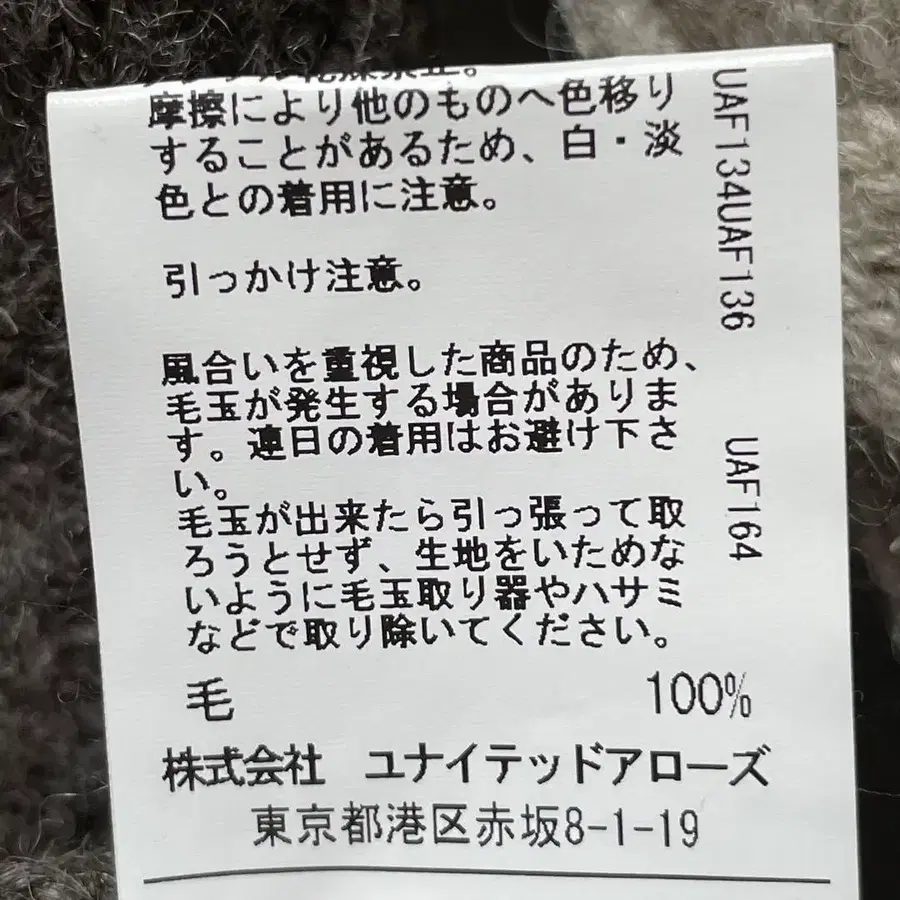 摩擦により他のものへ色移り
することがあるため、白・淡
色との着用に注意。
引っかけ注意。
風合いを重視した商品のため、
毛玉が発生する場合がありま
す。連日の着用はお避け下さ
い。
毛玉が出来たら引っ張って取
ろうとせず、生地をいためな
いように毛玉取り器やハサミ
などで取り除いてください。
毛 100%
株式会社 ユナイテッドアローズ
東京都港区赤坂8-1-19
UAF134UAF136 UAF164